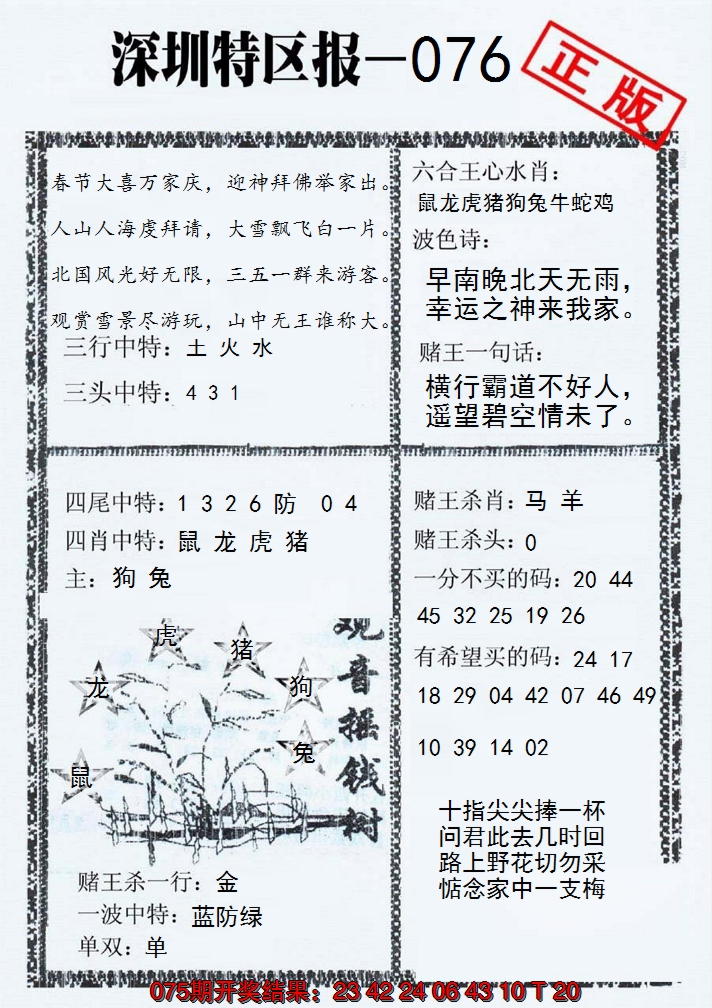 深圳特区报-076
正版
春节大喜万家庆，迎神拜佛举家出。
人山人海虔拜请，大雪飘飞白一片。
北国风光好无限，三五一群来游客。
观赏雪景尽游玩，山中无王谁称大。
三行中特：土 火 水
三头中特：4 3 1
六合王心水肖：
鼠龙虎猪狗兔牛蛇鸡
波色诗：
早南晚北天无雨，
幸运之神来我家。
赌王一句话：
横行霸道不好人，
遥望碧空情未了。
四尾中特：1 3 2 6 防 0 4
四肖中特：鼠 龙 虎 猪
主：狗 兔
观音摇钱树
虎
猪
龙
狗
兔
鼠
赌王杀一行：金
一波中特：蓝防绿
单双：单
赌王杀肖：马 羊
赌王杀头：0
一分不买的码：20 44
45 32 25 19 26
有希望买的码：24 17
18 29 04 42 07 46 49
10 39 14 02
十指尖尖捧一杯
问君此去几时回
路上野花切勿采
惦念家中一支梅
075期开奖结果：23 42 24 06 43 10 T 20